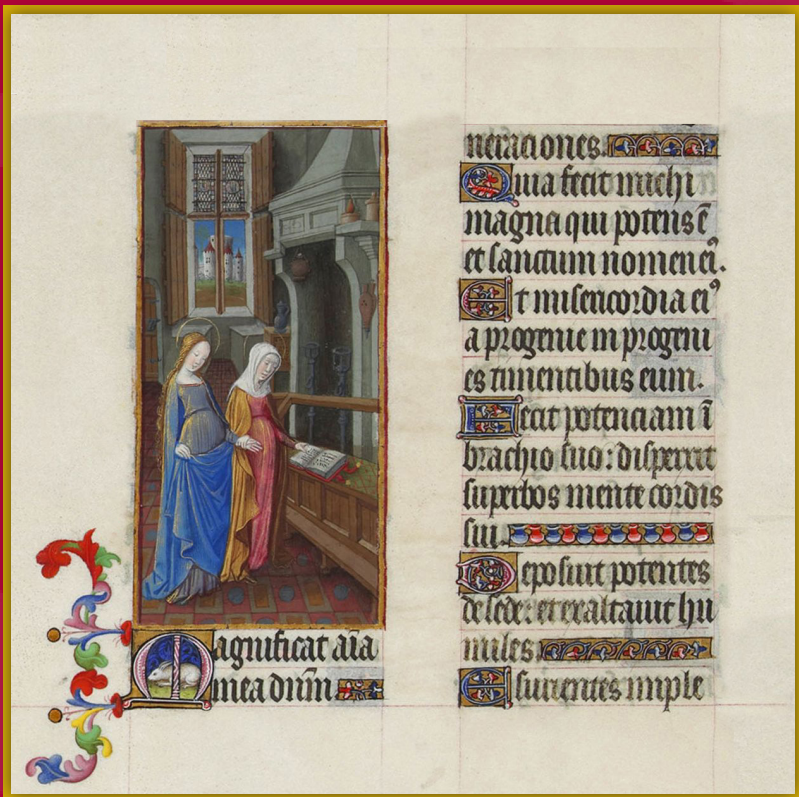 Magnificat aīa
mea dn̄m.
neraciones.
Quia fecit michi
magna qui potens ē
et sanctum nomen eiꝰ.
Et misericordia eiꝰ
a progenie in progeni
es timentibus eum.
Fecit potenciam ī
brachio suo: dispersit
superbos mente cordis
sui.
Deposuit potentes
de sede: et exaltavit hu
miles.
Esurientes imple